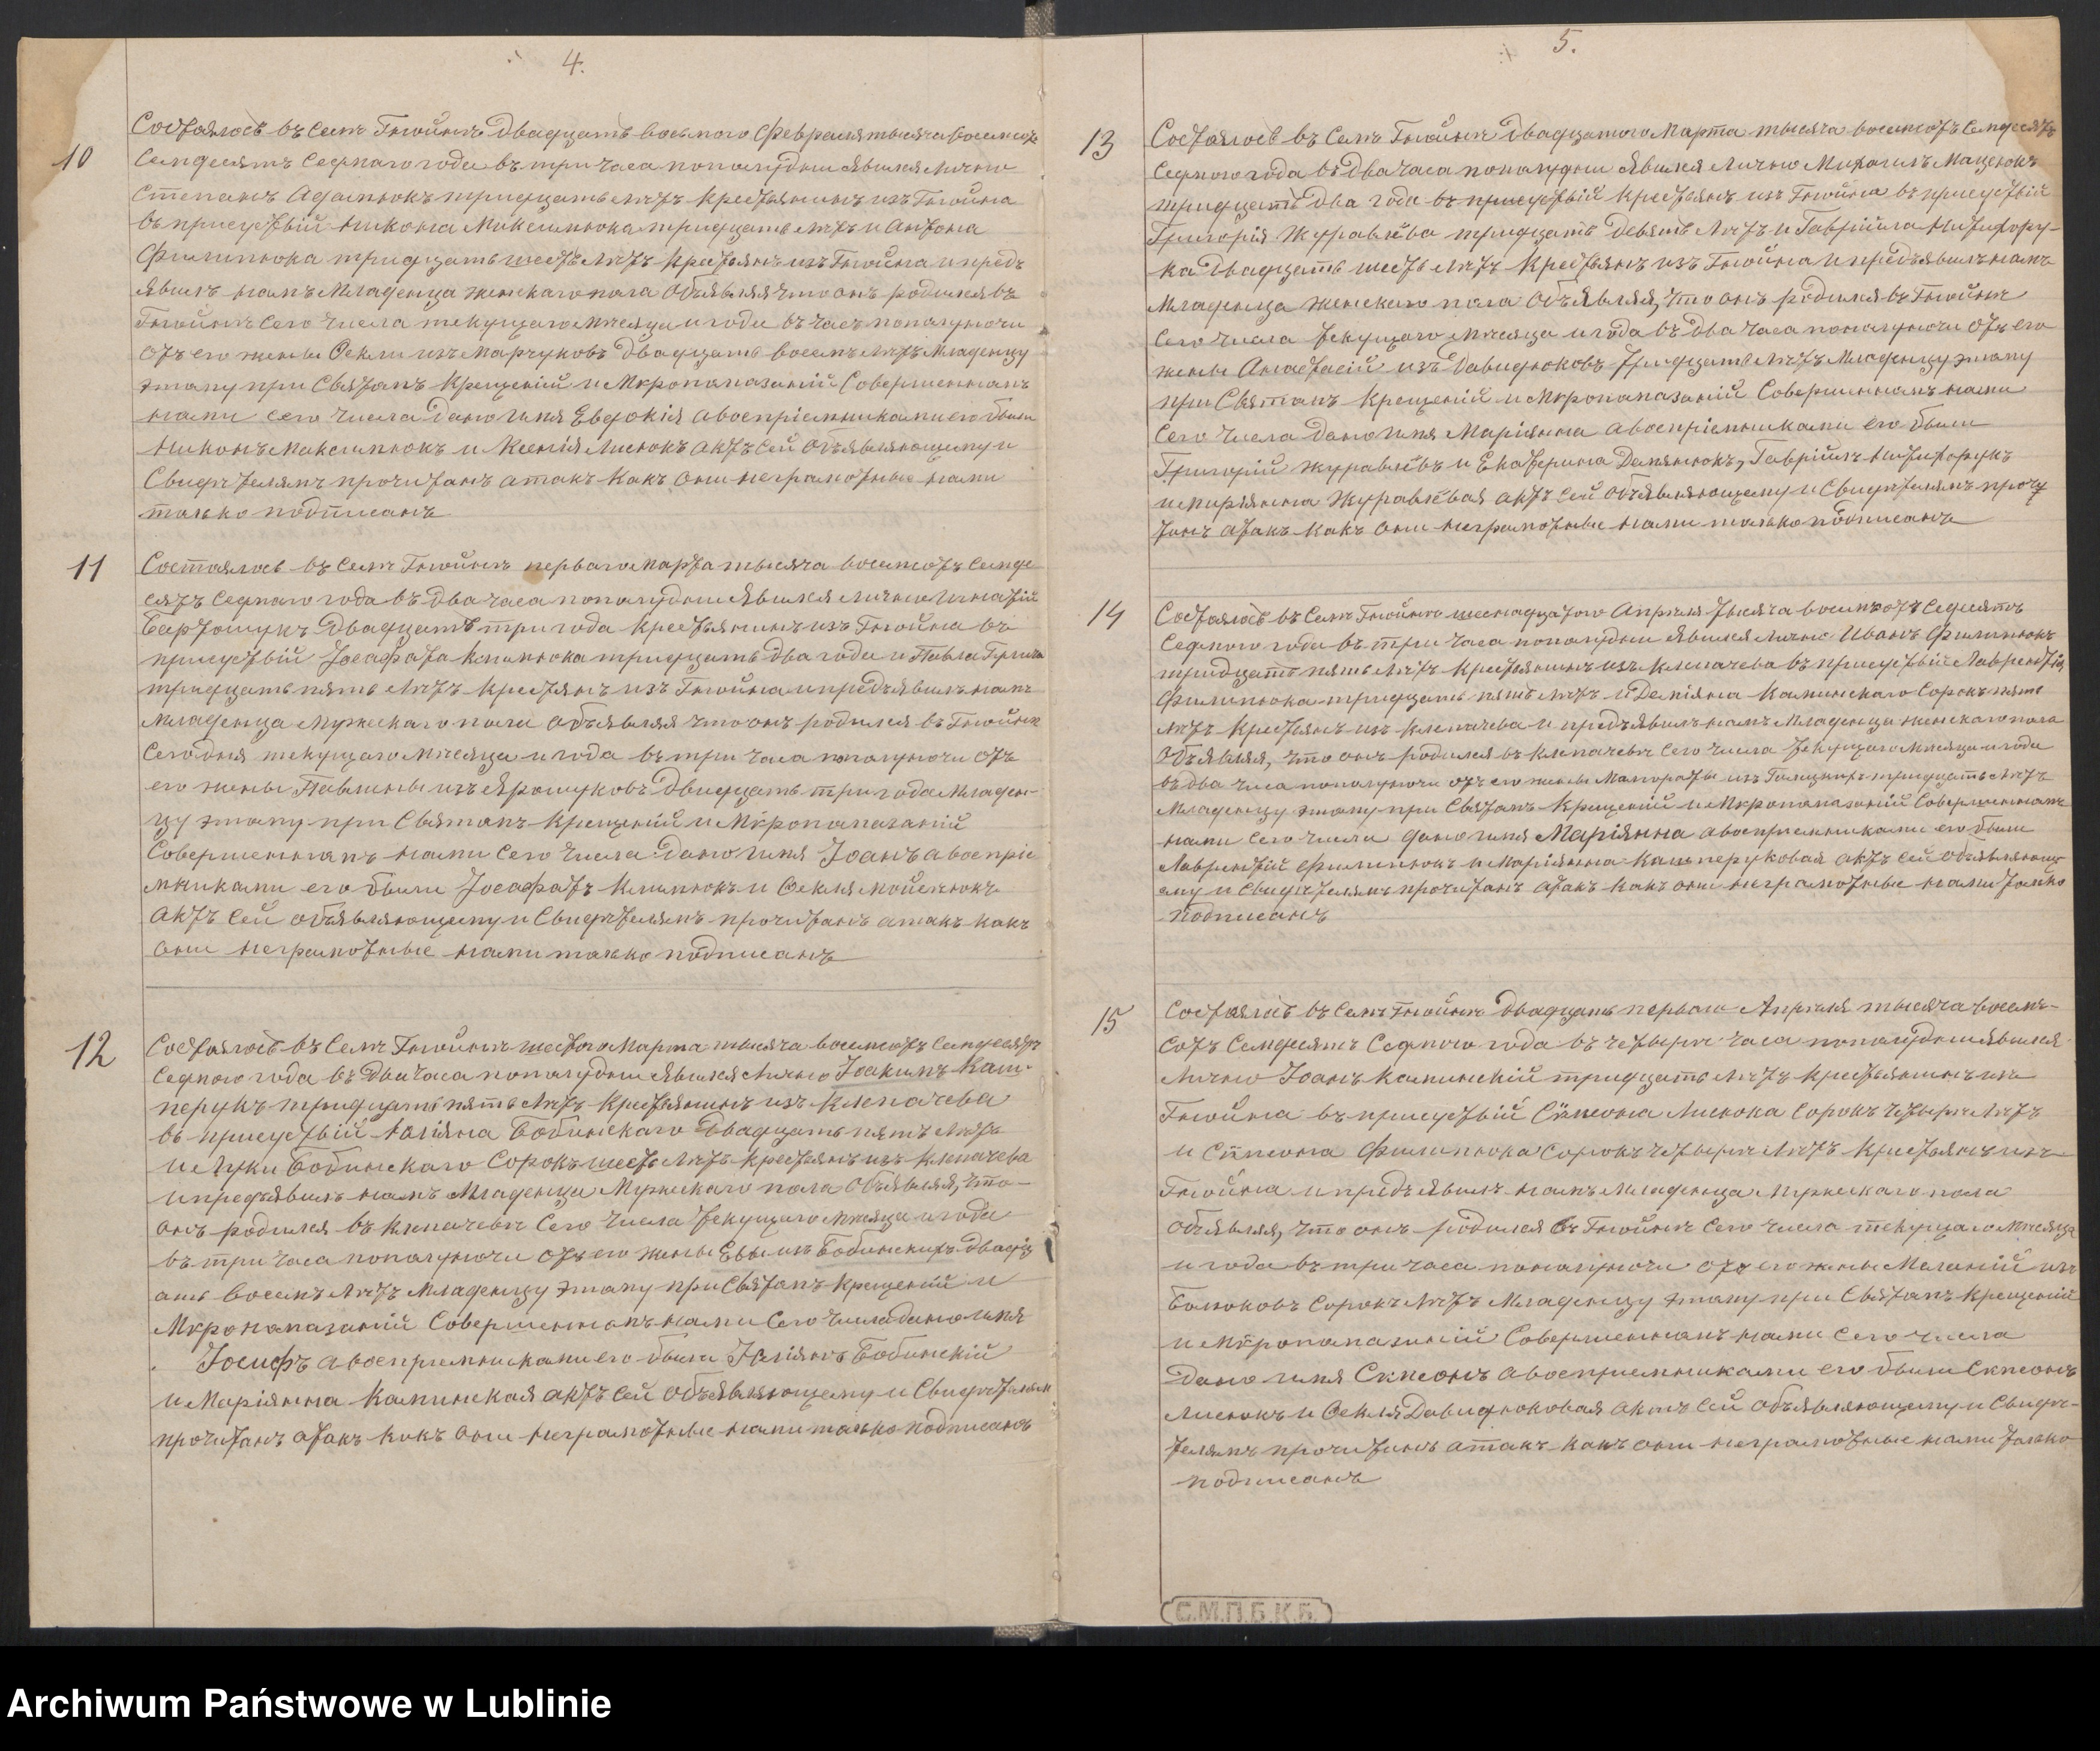 4.
10
Состоялось въ селѣ Гнойнѣ двадцать восьмого Февраля тысяча восемсотъ
семдесятъ седмаго года въ три часа пополудни явился лично
Степанъ Адамюкъ тридцать лѣтъ крестьянинъ изъ Гнойна
въ присуствій Никона Максимюка тридцать лѣтъ и Антона
Филипюка тридцать шесть лѣтъ крестьянъ изъ Гнойна и предъ
явилъ намъ младенца женскаго пола объявляя что онъ родился въ
Гнойнѣ сего числа текущаго мѣсяца и года въ часъ пополуночи
отъ его жены Феклы изъ Марчуковъ двадцать восемъ лѣтъ младенцу
этому при Святомъ крещеній и Мѵропомазаній совершенномъ
нами сего числа дано имя Евдокія а воспріемниками его были
Никонъ Максимюкъ и Ксенія Лисюкъ актъ сей объявляющему и
свидѣтелямъ прочитанъ а такъ какъ они неграмотные нами
только подписанъ
11
Состоялось въ селѣ Гнойнѣ перваго Марта тысяча восемсотъ семде
сятъ седмаго года въ два часа пополудни явился лично Игнатій
Бартошукъ двадцать три года крестьянинъ изъ Гнойна въ
присуствій Іосафата Климюка тридцать два года и Павла
тридцать пять лѣтъ крестьянъ изъ Гнойна и предъявилъ намъ
младенца мужескаго пола объявляя что онъ родился въ Гнойнѣ
сегодня текущаго мѣсяца и года въ три часа пополуночи отъ
его жены Павлины изъ Ярошуковъ двадцать три года младен-
цу этому при Святомъ крещеній и Мѵропомазаній
совершенномъ нами сего числа дано имя Іоанъ а воспріе
мниками его были Іосафатъ Климюкъ и Фекля
актъ сей объявляющему и свидѣтелямъ прочитанъ а такъ какъ
они неграмотные нами только подписанъ
12
Состоялось въ селѣ Гнойнѣ шестого Марта тысяча восемсотъ семдесятъ
седмого года въ два часа пополудни явился лично Іоакимъ Каш-
перукъ тридцать пять лѣтъ крестьянинъ изъ Клепачева
въ присуствій Юліяна Бобинскаго двадцать пять лѣтъ
и Луки Бобинскаго сорокъ шесть лѣтъ крестьянъ изъ Клепачева
и предъявилъ намъ младенца мужескаго пола объявляя, что-
онъ родился въ Клепачевѣ сего числа текущаго мѣсяца и года
въ три часа пополуночи отъ его жены Евы изъ Бобинскихъ двадц
ать восемъ лѣтъ младенцу этому при Святомъ крещеній и
Мѵропомазаній совершенномъ нами сего числа дано имя
Іосифъ а воспріемниками его были Юліянъ Бобинскій
и Маріянна Калинская актъ сей объявляющему и свидѣтелям
прочитанъ а такъ какъ они неграмотные нами только подписанъ
5.
13
Состоялось въ селѣ Гнойнѣ двадцатого Марта тысяча восемсотъ семдесятъ
седмого года въ два часа пополудни явился лично Михаилъ Мацеюкъ
тридцать два года въ присуствій крестьянъ изъ Гнойна въ присуствій
Григорія Журавлёва тридцать девять лѣтъ и Гавріила Нифифору-
ка двадцать шесть лѣтъ крестьянъ изъ Гнойна и предъявилъ намъ
младенца женскаго пола объявляя, что онъ родился въ Гнойнѣ
сего числа текущаго мѣсяца и года въ два часа пополуночи отъ его
жены Анастасій изъ Давидюковъ тридцать лѣтъ младенцу этому
при Святомъ крещеній и Мѵропомазаній совершенномъ нами
сего числа дано имя Маріянна а воспріемниками его были
Григорій Журавлёвъ и Екатерина Демянюкъ, Гавріилъ Нифифорукъ
и Маріянна Журавлёвая актъ сей объявляющему и свидѣтелямъ прочи
танъ а такъ какъ они неграмотные нами только подписанъ
14
Состоялось въ селѣ Гнойнѣ шеснадцатого Апрѣля тысяча восемсотъ седмдесятъ
седмого года въ три часа пополудни явился лично Иванъ Филипюкъ
тридцать пять лѣтъ крестьянинъ изъ Клепачева въ присуствій Лаврентія
Филипюка тридцать пять лѣтъ и Деміяна Калинскаго сорокъ пять
лѣтъ крестьянъ изъ Клепачева и предъявилъ намъ младенца женскаго пола
объявляя, что онъ родился въ Клепачевѣ сего числа текущаго мѣсяца и года
въ два часа пополуночи отъ его жены Малгораты изъ тридцать лѣтъ
младенцу этому при Святомъ крещеній и Мѵропомазаній совершенномъ
нами сего числа дано имя Маріянна а воспріемниками его были
Лаврентій Филипюкъ и Маріянна Кашперуковая актъ сей объявляющ
ему и свидѣтелямъ прочитанъ а такъ какъ они неграмотные нами только
подписанъ
15
Состоялось въ селѣ Гнойнѣ двадцать перваго Апрѣля тысяча восемъ-
сотъ семдесятъ седмого года въ четыре часа пополудни явился
лично Іоанъ Калинскій тридцать лѣтъ крестьянинъ изъ
Гнойна въ присуствій Сѵмеона Лисюка сорокъ четыре лѣтъ
и Сѵмеона Филипюка сорокъ четыре лѣтъ крестьянъ изъ
Гнойна и предъявилъ намъ младенца мужескаго пола
объявляя, что онъ родился въ Гнойнѣ сего числа текущаго мѣсяца
и года въ три часа пополуночи отъ его жены Меланій изъ
сорокъ лѣтъ младенцу этому при Святомъ крещеній
и Мѵропомазаній совершенномъ нами сего числа
дано имя Сѵмеонъ а воспріемниками его были Сѵмеонъ
Лисюкъ и Фекля Давидюковая актъ сей объявляющему и свидѣ-
телямъ прочитанъ а такъ какъ они неграмотные нами только
подписанъ
С.М.П.Б.К.Б.
Archiwum Państwowe w Lublinie